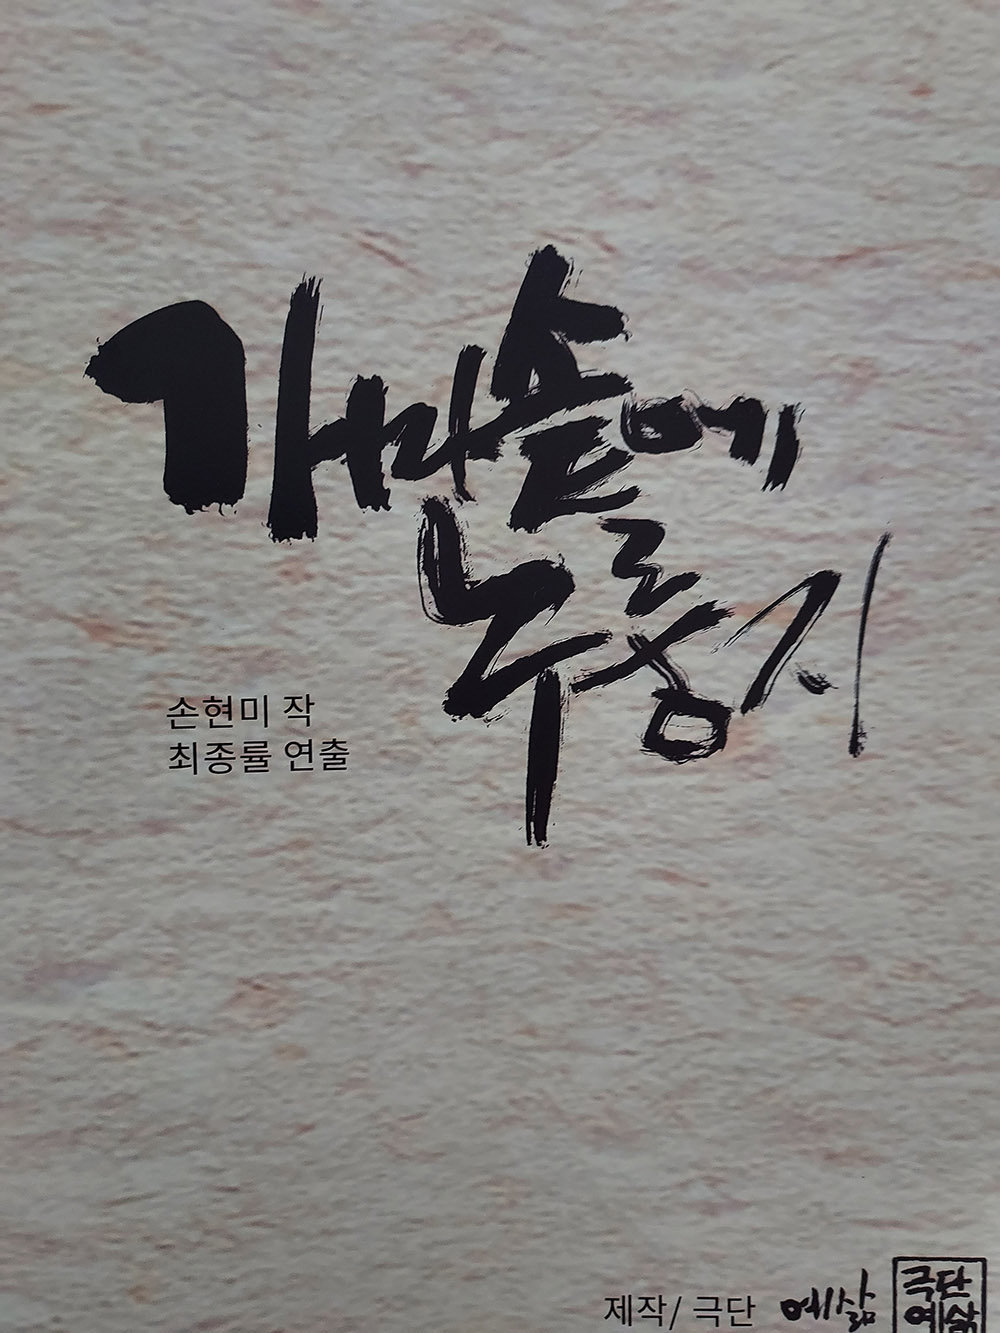 가마솥에
누룽지
손현미 작
최종률 연출
제작/ 극단 예삶
극단
예삶